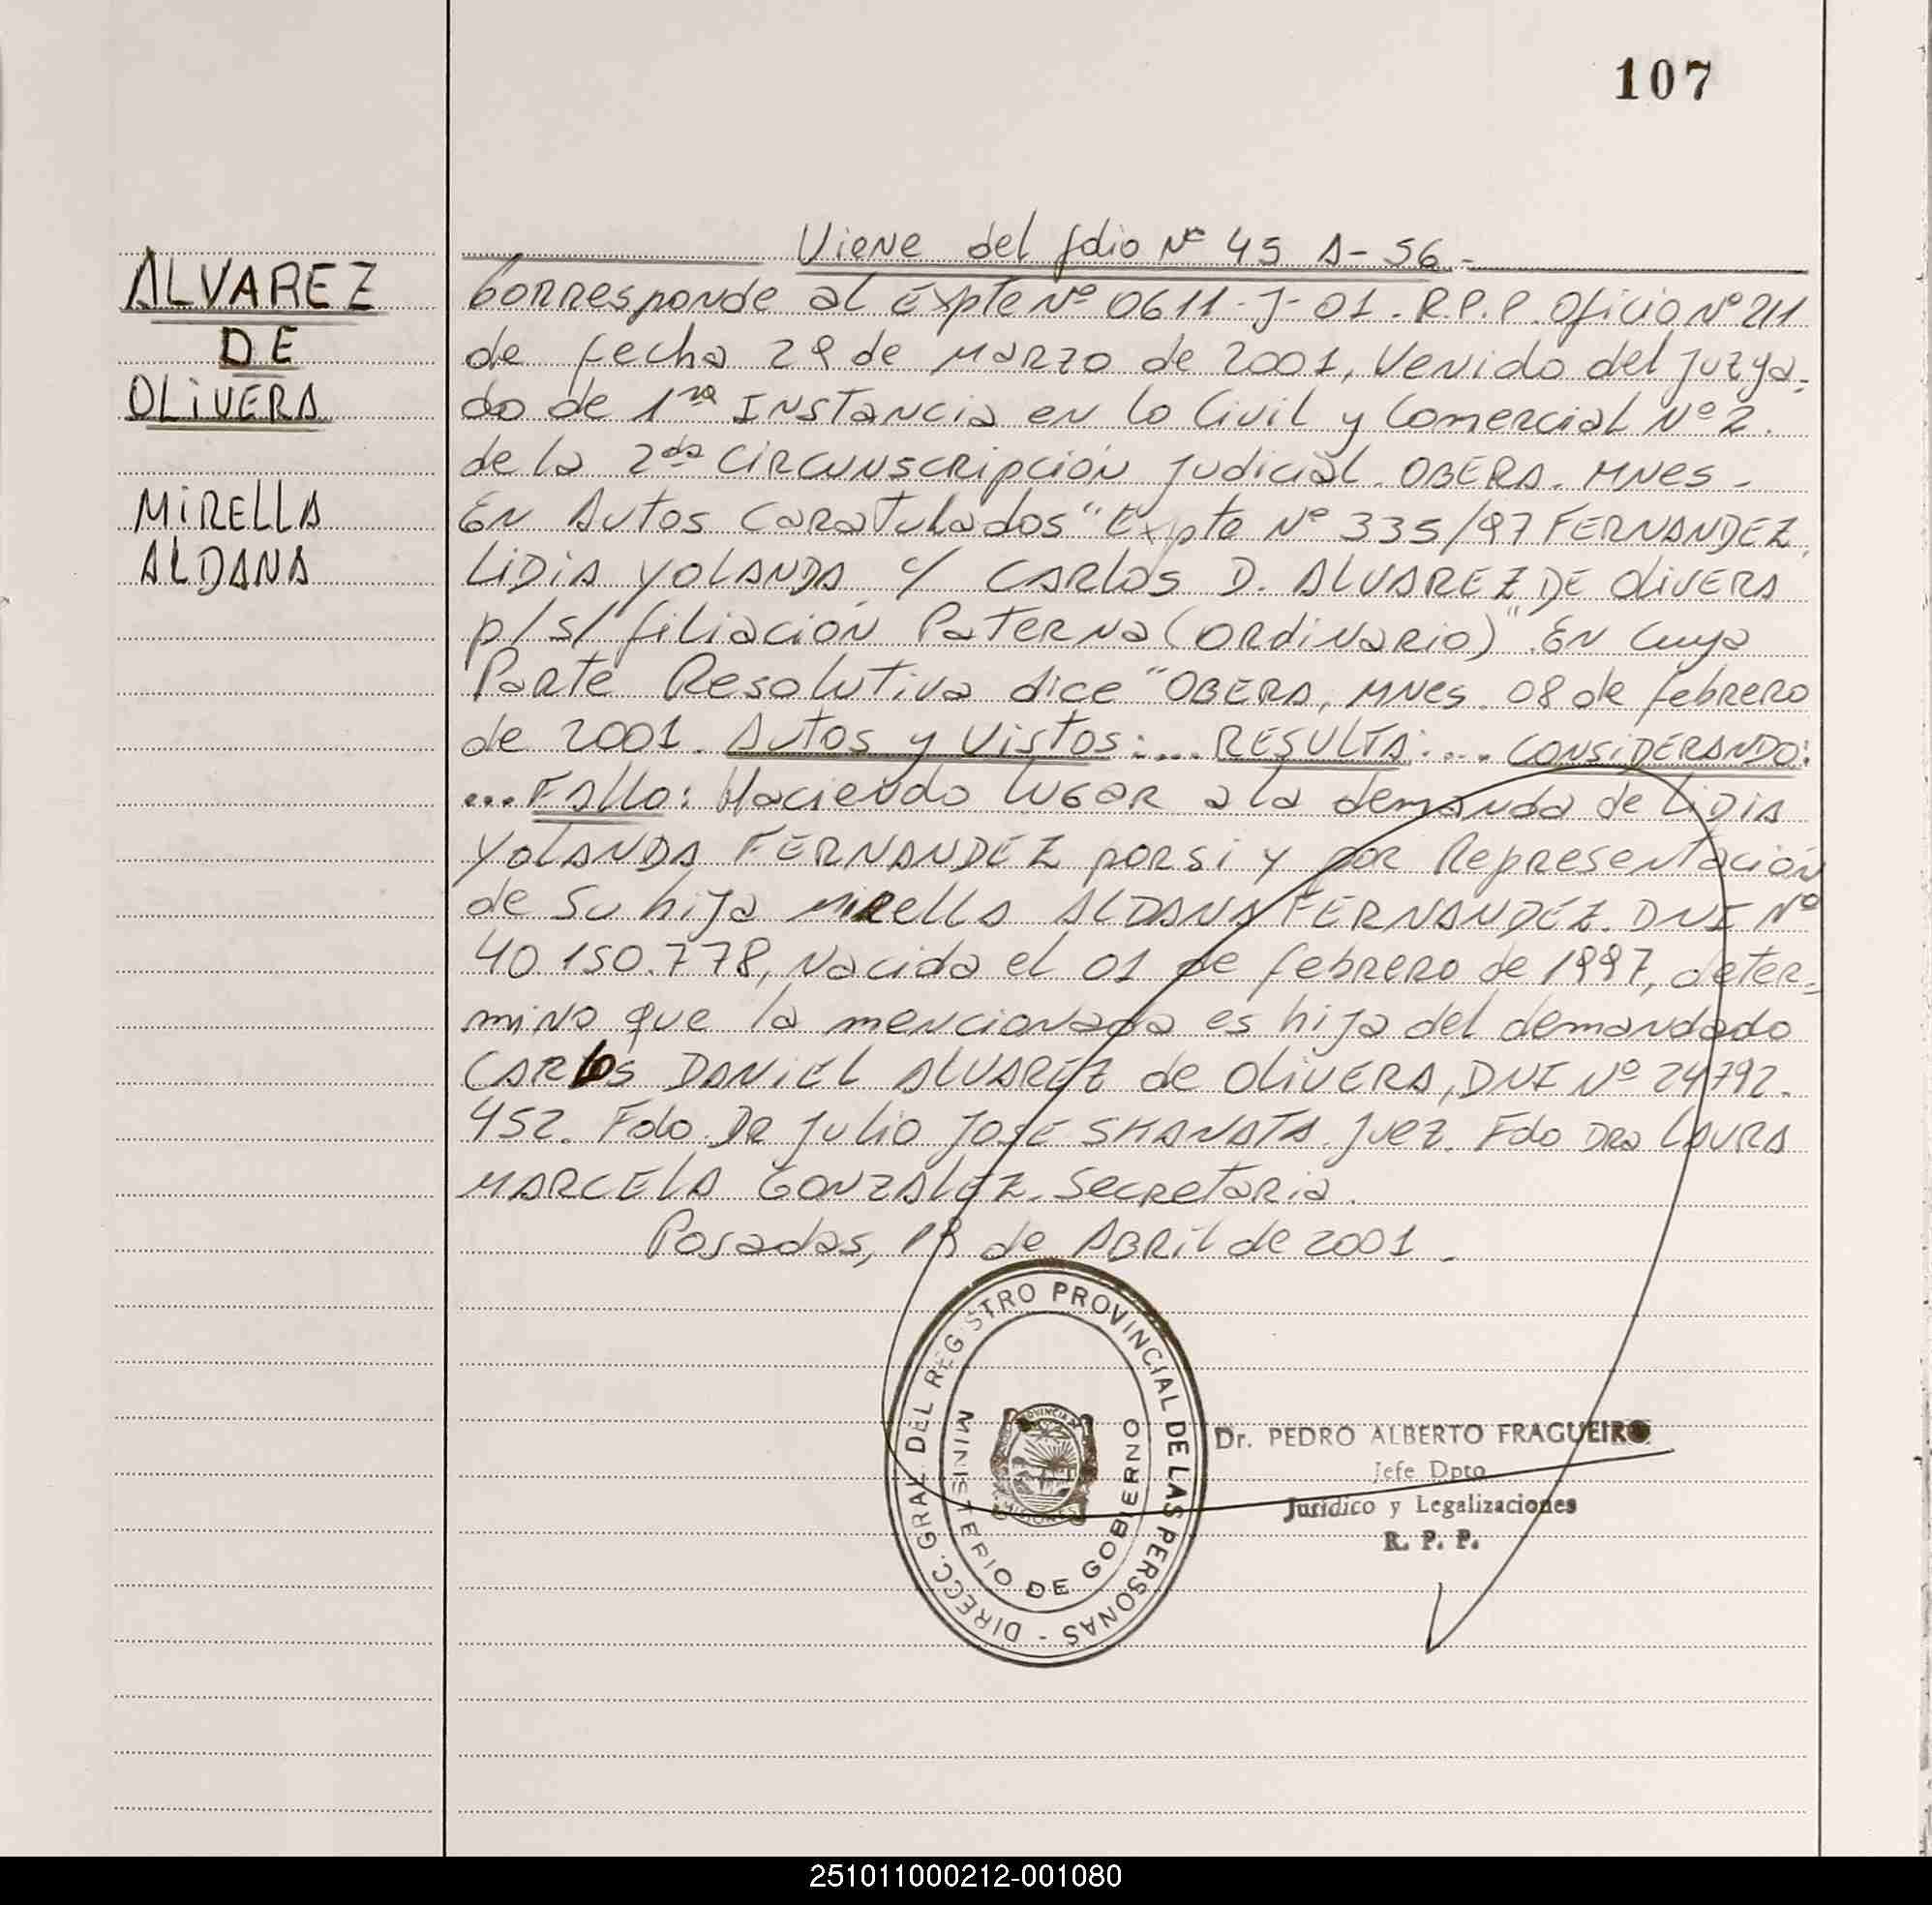 107
Viene del folio Nº 45 A-56.-
ALVAREZ
DE
OLIVERA
MIRELLA
ALDANA
Corresponde al Expte Nº 0611-J-01. R.P.P. Oficio Nº 211
de fecha 29 de Marzo de 2001, Venido del Juzga=
do de 1ra Instancia en lo Civil y Comercial Nº 2.
de la 2da Circunscripción Judicial. OBERA. MNES-
En Autos Caratulados "Expte Nº 335/97 FERNANDEZ,
LIDIA YOLANDA c/ CARLOS D. ALVAREZ DE OLIVERA
p/s/ filiación Paterna (ordinario)". En cuya
Parte Resolutiva dice "OBERA, MNES. 08 de febrero
de 2001. Autos y Vistos:... RESULTA:... CONSIDERANDO:
...Fallo: Haciendo lugar a la demanda de LIDIA
YOLANDA FERNANDEZ por si y por Representación
de su hija Mirella ALDANA FERNANDEZ. DNI Nº
40.150.778, nacida el 01 de febrero de 1997, deter=
mino que la mencionada es hija del demandado
CARLOS DANIEL ALVAREZ de OLIVERA, DNI Nº 24.792.
452. Fdo. Dr Julio José SKANATA. Juez. Fdo Dra LAURA
MARCELA GONZALEZ. Secretaria.
Posadas, 18 de Abril de 2001.
DIRECC. GRAL. DEL REGISTRO PROVINCIAL DE LAS PERSONAS -
MINISTERIO DE GOBIERNO
PROVINCIA
MISIONES
Dr. PEDRO ALBERTO FRAGUEIRO
Jefe Dpto
Jurídico y Legalizaciones
R. P. P.
251011000212-001080